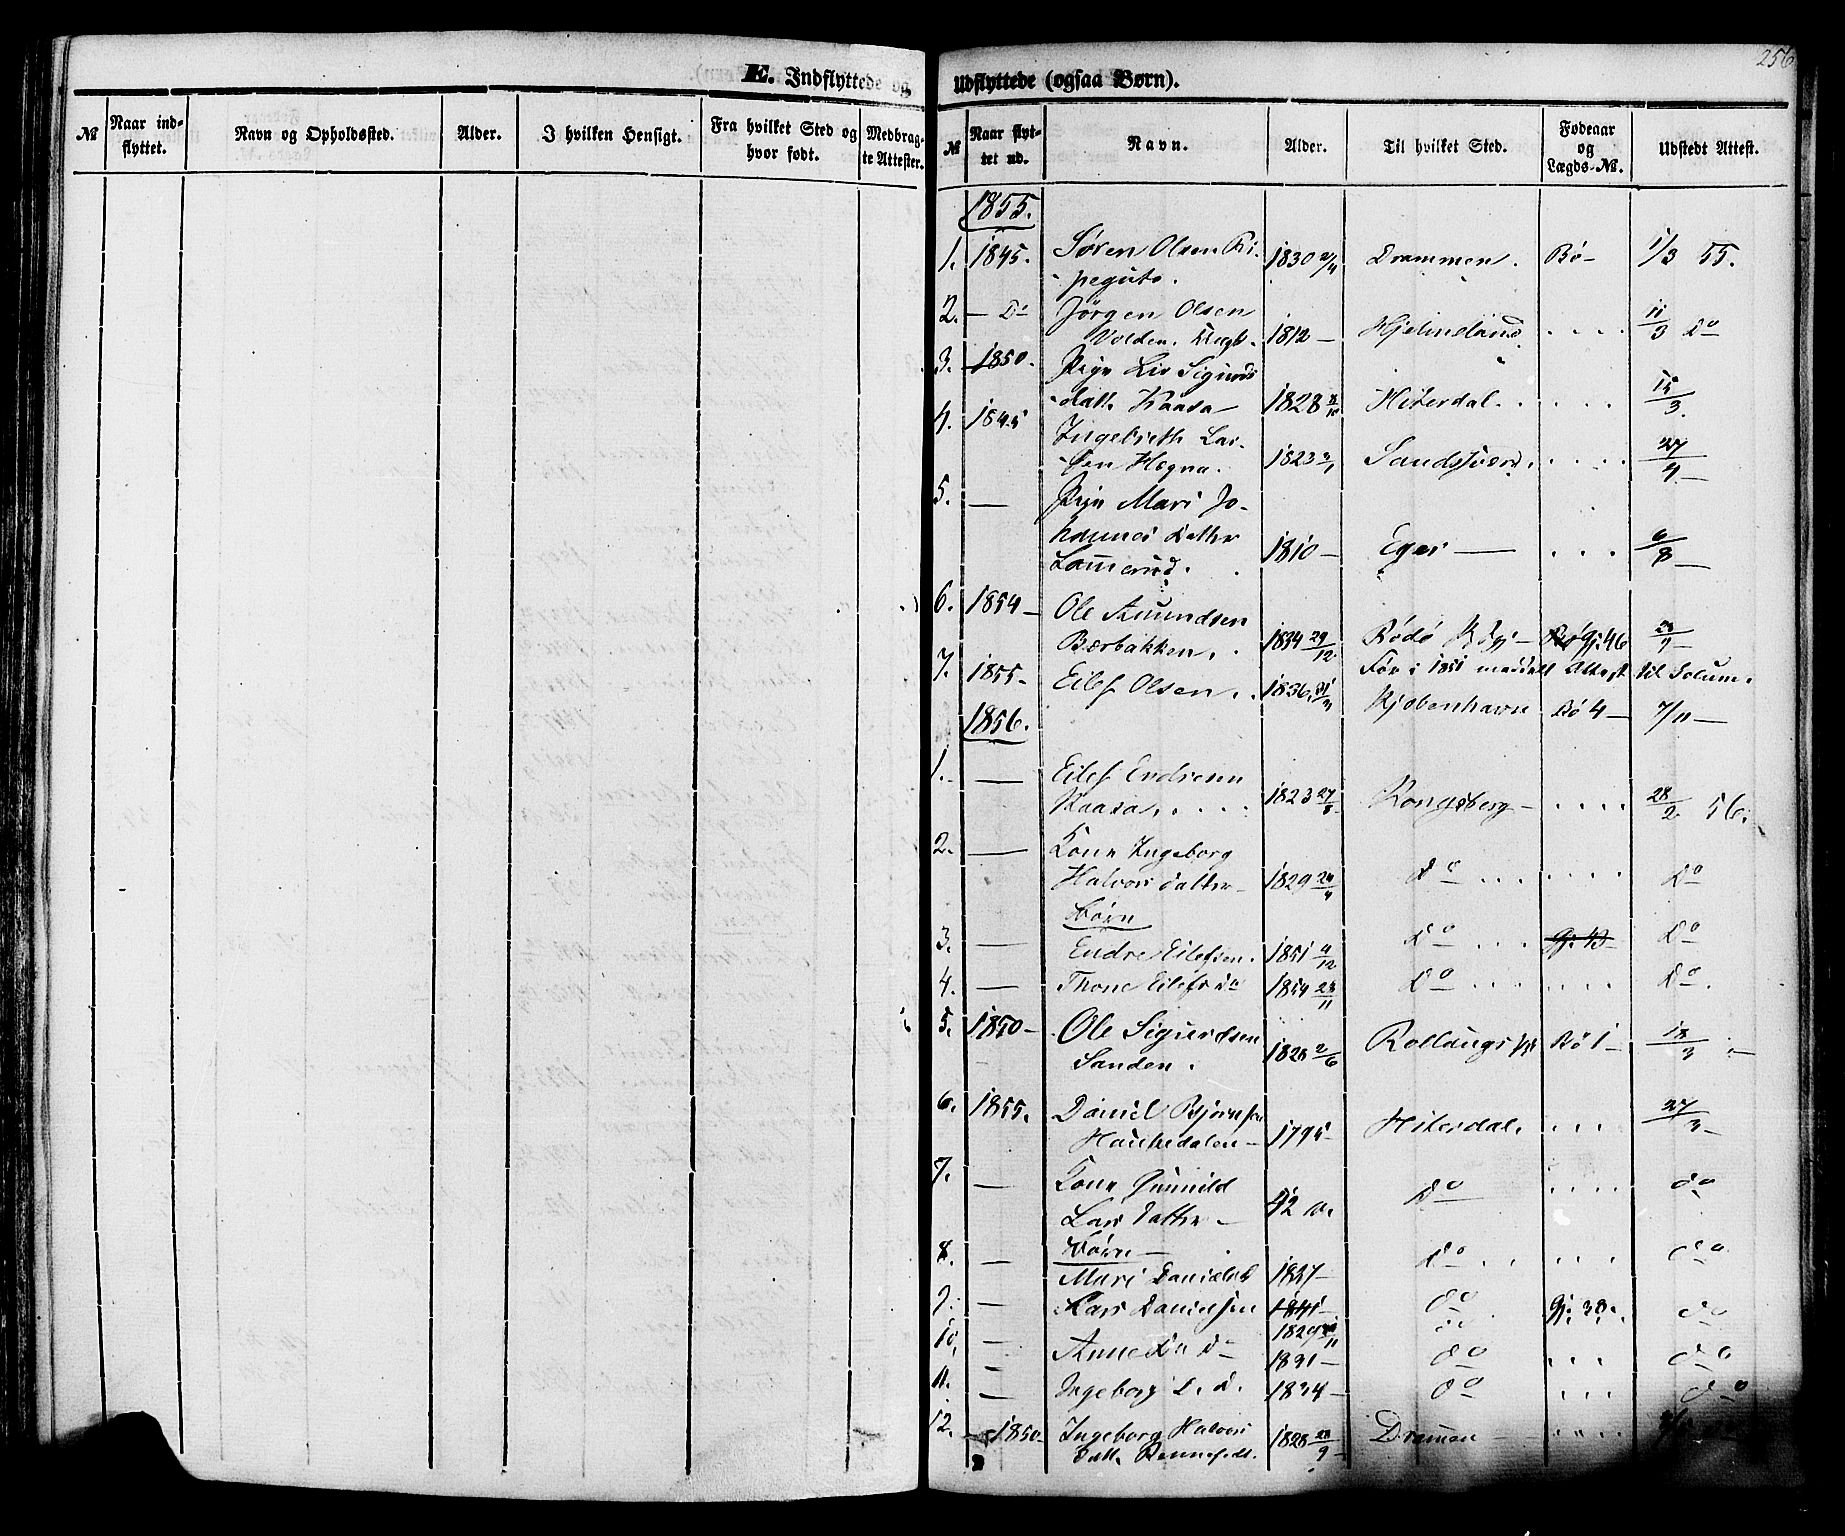 256
E. Indflyttede og
Udflyttede (ogsaa Børn).
№ Naar ind-flyttet. Navn og Opholdssted. Alder. I hvilken Hensigt. Fra hvilket Sted og hvor født. Medbrag-te Attester.
№ Naar flyt-tet ud. Navn. Alder. Til hvilket Sted. Fødeaar og Lægds-№. Udstedt Attest.
1855.
1. 1845. Søren Olsen Ri- 1830 Drammen. Bø - 1/3 55.
2. — Do Jørgen Olsen
Volden. 1812 — . . . . 11/3 do
3. 1850. Pige Liv Sigurds
datt. Kaasa 1828 Hiterdal. . . . . . 15/3.
4. 1845 Ingebreth Lar-
sen Hegna. 1823 Sandsvær. . . . . 27/4 —
5. — Pige Mari Jo-
hannes Datter 1810 — Eger — . . . 6/8 —
6. 1854 — Ole Amundsen
Bærbakken. 1834 29/12 Bödö
Før i 1851 meddelt Attest til Solum.
7. 1855 - Eilef Olsen. 1836 Kjøbenhavn Bø 4 — 7/11 —
1856.
1. — Eilef Endresen
Kaasa. . . . 1823 27/8 Kongsberg — . . . . 28/2 56.
2. — Kone Ingeborg
Halvorsdatter — 1829 do . . . . . . . do
Børn
3. — Endre Eilefsen. 1851 4/12 do . . . do
4. — Thone Eilefs da 1854 23/11 do . . . . . . do.
5. 1850 — Ole Sigurdsen
Sanden. 1828 2/6 Bø 1 — 18/3 —
6. 1855. Daniel Bjørnsen
Haukedalen — 1795 Hiterdal. . . . 27/3 —
7. — Kone Gunnild
Lars datter — 42 do . . . . do
Børn —
8. — Mari Daniels d 1827 — do . . . . . do
9. — Lars Danielsen 1841 — do Gj. 38. do
10. — Anne D d — 1831 — do . . . do
11. — Ingeborg D. d. 1834 — do . . . do
12. 1850 — Ingeborg Halvors
datt. 1828 Dramen — . . . .